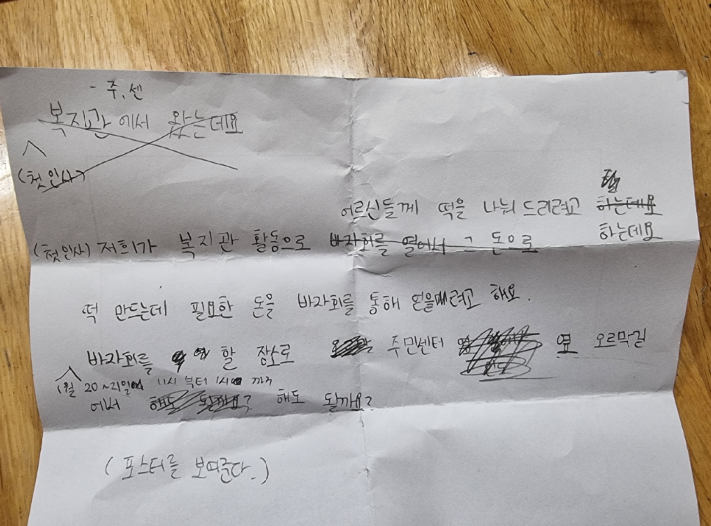 - 주, 센
복지관에서 왔는데요
(첫인사)
어르신들께 떡을 나눠 드리려고 하는데요
(첫인사) 저희가 복지관 활동으로 바자회를 열어서 그 돈으로 하는데요
떡 만드는데 필요한 돈을 바자회를 통해 얻을려고 해요.
바자회를 할 장소로 주민센터 옆 오르막길
1월 20~21일에 11시 부터 1시 까지
에서 해도 될까요? 해도 될까요?
(포스터를 보여준다.)